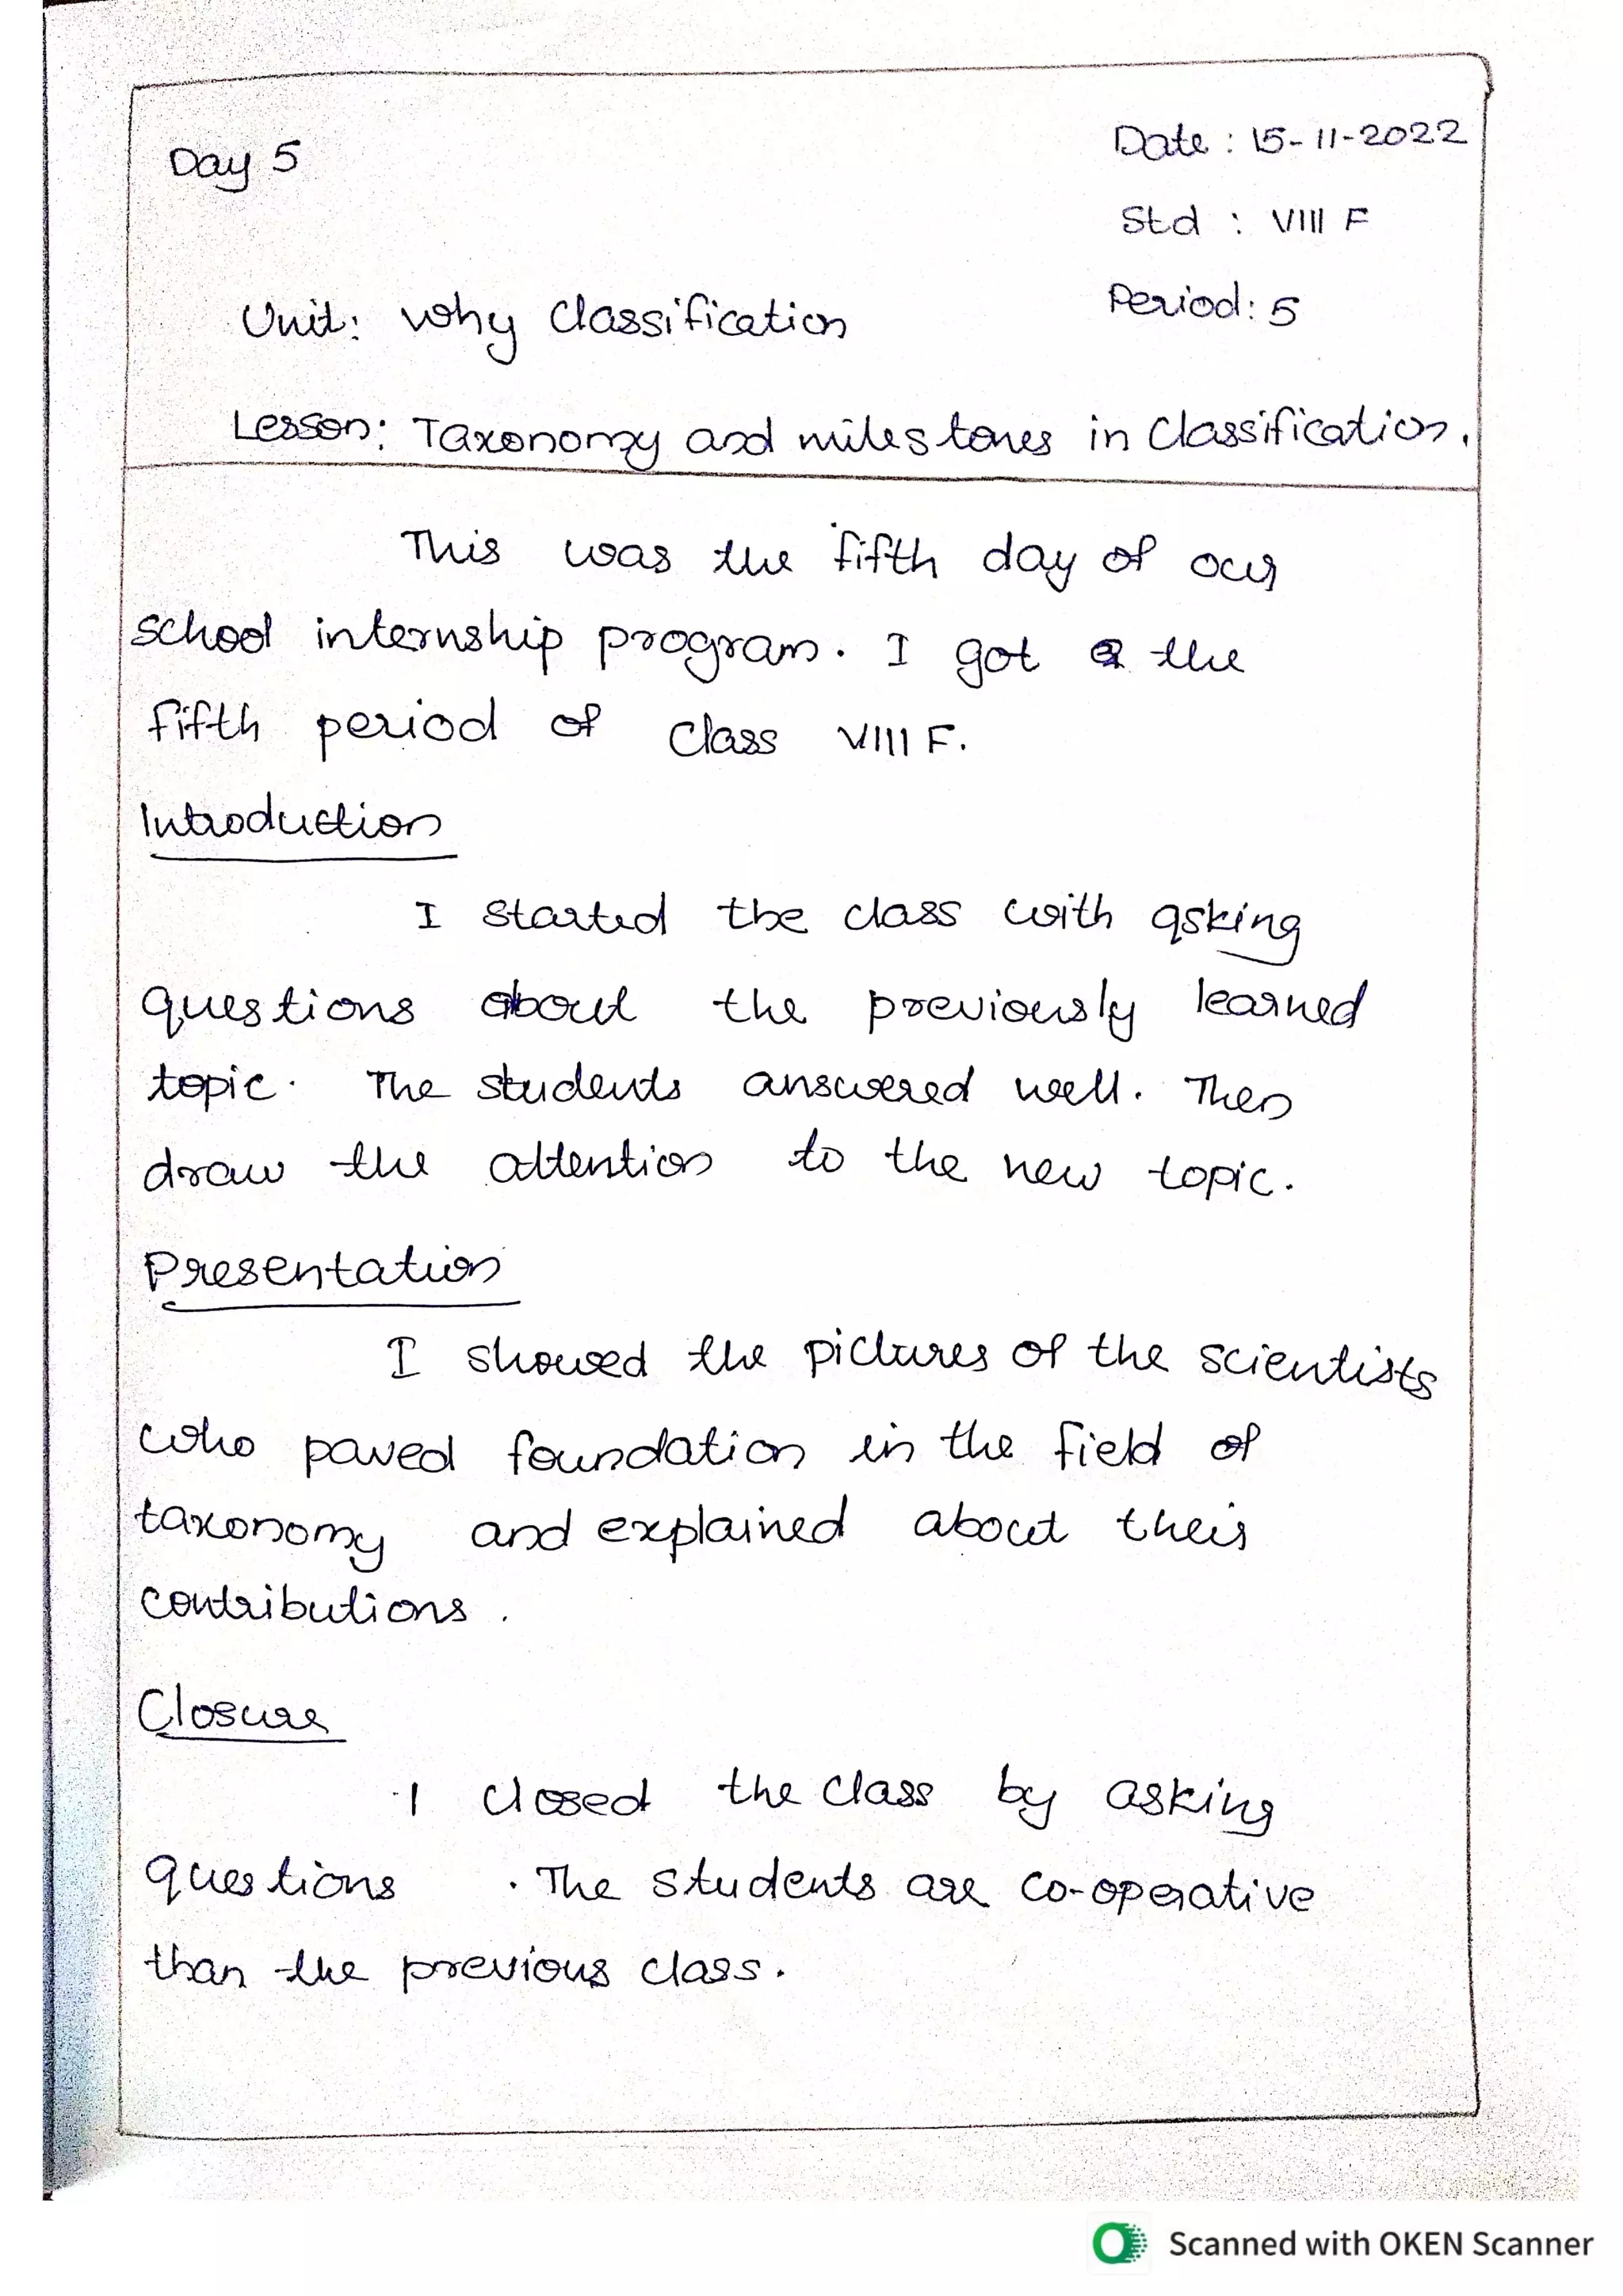 Day 5
Date : 15-11-2022
Std : VIII F
Period: 5
Unit: Why Classification
Lesson: Taxonomy and milestones in Classification.
This was the fifth day of our
school internship program. I got the
fifth period of class VIII F.
Introduction
I started the class with asking
questions about the previously learned
topic. The students answered well. Then
draw the attention to the new topic.
Presentation
I showed the pictures of the scientists
who paved foundation in the field of
taxonomy and explained about their
contributions.
Closure
I closed the class by asking
questions . The students are co-operative
than the previous class.
Scanned with OKEN Scanner